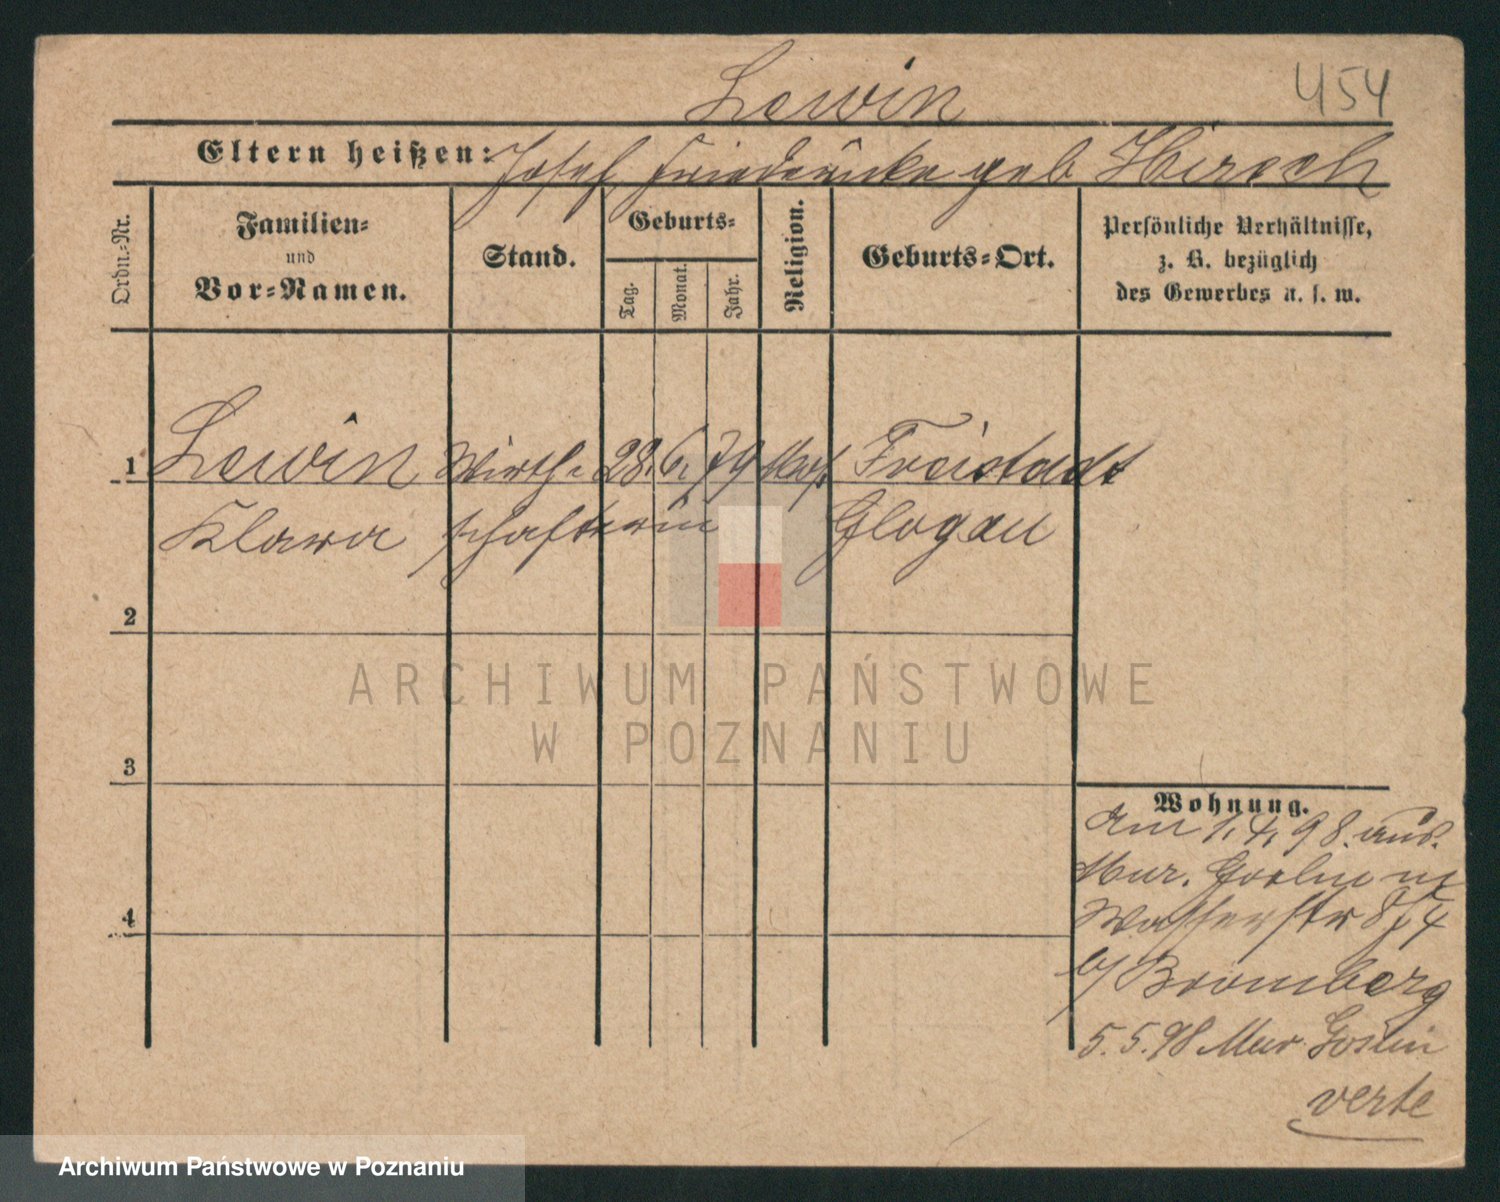 Lewin
454
Eltern heißen: Josef, Friedericke geb Hirsch
Ordn.-Nr.
Familien-
und
Vor-Namen.
Stand.
Geburts-
Tag.
Monat.
Jahr.
Religion.
Geburts-Ort.
Persönliche Verhältnisse,
z. B. bezüglich
des Gewerbes u. s. w.
1 Lewin Wirth- 28. 6. 79 Freistadt
Klara schafterin Glogau
2
3
4
Wohnung.
Am 1. 4. 98. aus.
Mur. Goslin
Wasserstr 8/4
b/ Bromberg
5. 5. 98 Mur. Goslin
verte
ARCHIWUM PAŃSTWOWE
W POZNANIU
Archiwum Państwowe w Poznaniu